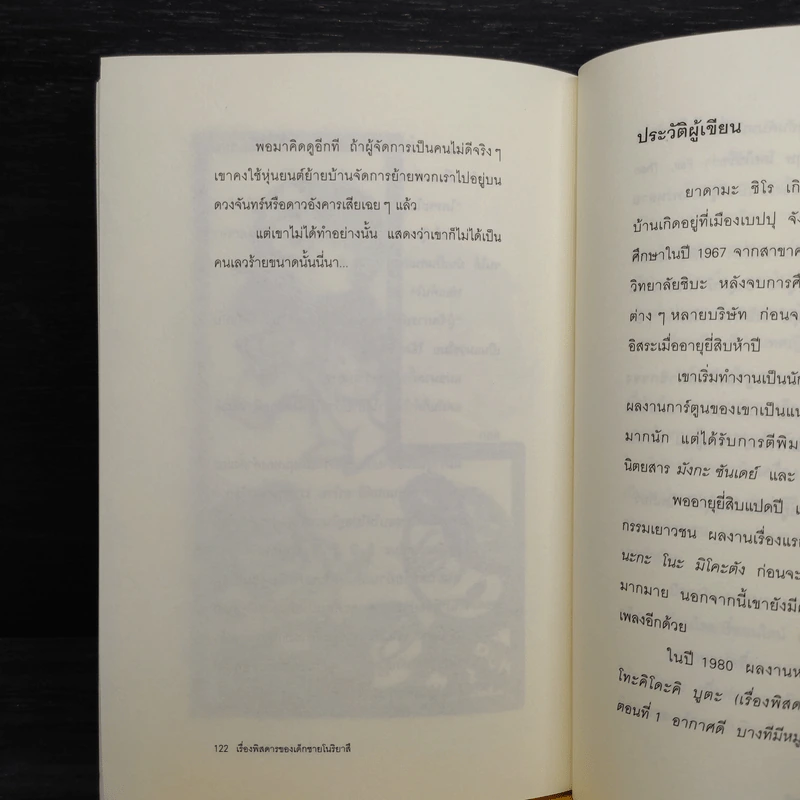 พอมาคิดดูอีกที ถ้าผู้จัดการเป็นคนไม่ดีจริงๆ
เขาคงใช้หุ่นยนต์ย้ายบ้านจัดการย้ายพวกเราไปอยู่บน
ดวงจันทร์หรือดาวอังคารเสียเฉยๆ แล้ว
แต่เขาไม่ได้ทำอย่างนั้น แสดงว่าเขาก็ไม่ได้เป็น
คนเลวร้ายขนาดนั้นนี่นา...
122 เรื่องพิสดารของเด็กชายโนริยาสึ
ประวัติผู้เขียน
ยาดามะ ชิโร เกิ
บ้านเกิดอยู่ที่เมืองเบปปุ จัง
ศึกษาในปี 1967 จากสาขาค
วิทยาลัยชิบะ หลังจบการศึ
ต่างๆ หลายบริษัท ก่อนจ
อิสระเมื่ออายุยี่สิบห้าปี
เขาเริ่มทำงานเป็นนัก
ผลงานการ์ตูนของเขาเป็นแน
มากนัก แต่ได้รับการตีพิม
นิตยสาร มังกะ ซันเดย์ และ
พออายุยี่สิบแปดปี เ
กรรมเยาวชน ผลงานเรื่องแร
นะกะ โนะ มิโคะตัง ก่อนจะ
มากมาย นอกจากนี้เขายังมี
เพลงอีกด้วย
ในปี 1980 ผลงานห
โทะคิโดะคิ บูตะ (เรื่องพิสด
ตอนที่ 1 อากาศดี บางทีมีหมู